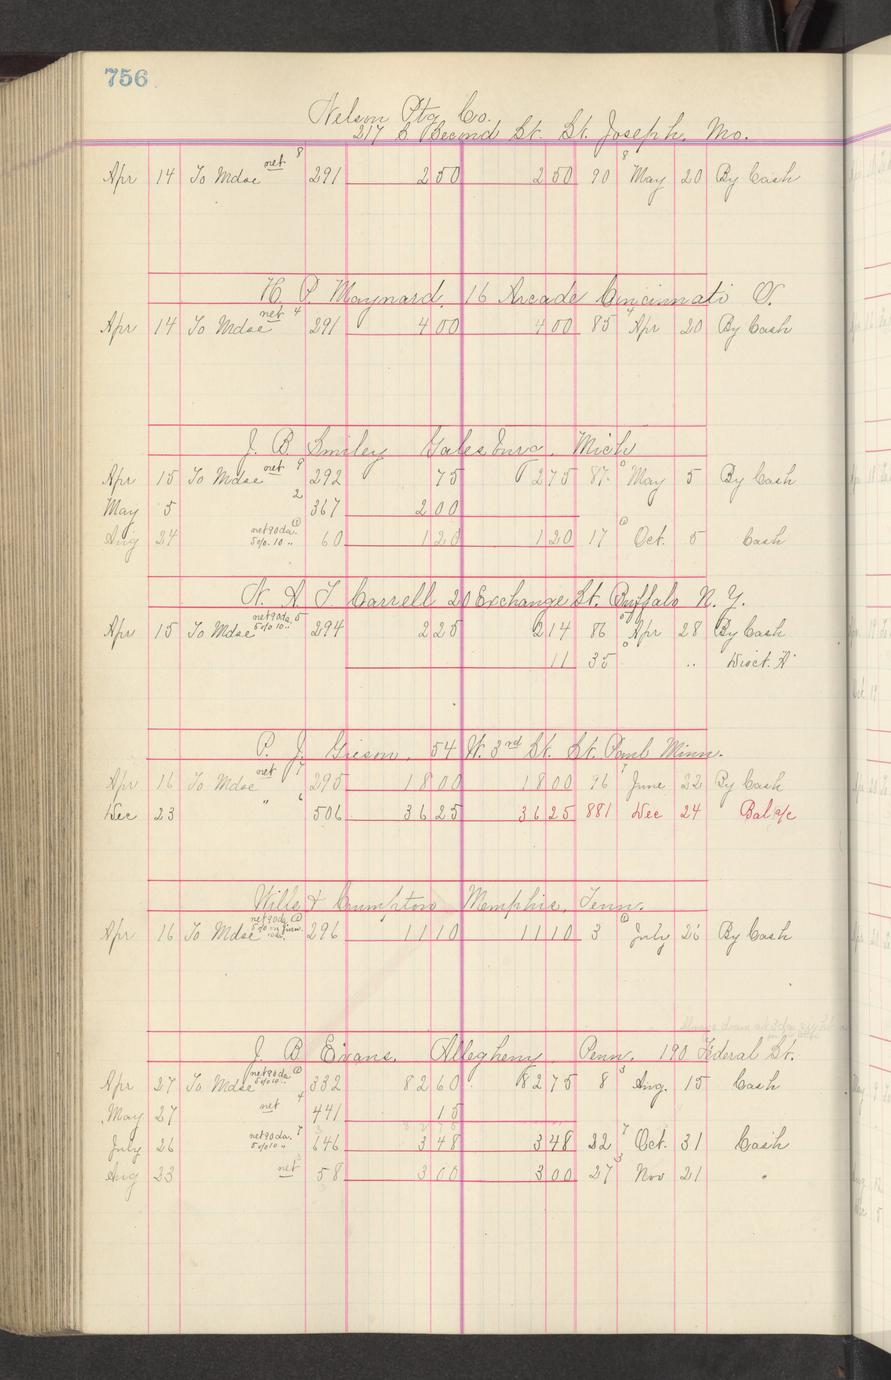 756
Nelson Ptg Co.
217 S. Second St. St. Joseph, Mo.
Apr 14 To Mdse net 8 291 2 50 2 50 90 8 May 20 By Cash
H. P. Maynard, 16 Arcade Cincinnati O.
Apr 14 To Mdse net 4 291 4 00 4 00 85 4 Apr 20 By Cash
J. B. Smiley Galesburg, Mich
Apr 15 To Mdse net 9 292 75 2 75 87 May 5 By Cash
May 5 2 367 2 00
Aug 24 net 90 da. 5% 10 " 60 1 20 1 20 17 Oct. 5 Cash
N. A. T. Carrell 20 Exchange St. Buffalo N. Y.
Apr 15 To Mdse net 90 da. 5% 10 " 5 294 2 25 2 14 86 Apr 28 By Cash
11 35 " Disct.
P. J. Gieson, 54 W. 3rd St. St. Paul Minn.
Apr 16 To Mdse net 7 295 18 00 18 00 96 7 June 22 By Cash
Dec 23 " 6 506 36 25 36 25 881 Dec 24 Bal a/c
Wills & Crumpton Memphis, Tenn.
Apr 16 To Mdse net 90 da. 296 11 10 11 10 3 July 26 By Cash
J. B. Evans, Allegheny, Penn. 190 Federal St.
Apr 27 To Mdse net 90 da. 5% 10 " 332 82 60 82 75 8 3 Aug. 15 Cash
May 27 net 4 441 15
82 75
July 26 net 90 da. 5% 10 " 7 646 3 48 3 48 22 7 Oct. 31 Cash
Aug 23 net 58 3 00 3 00 27 3 Nov 21 "